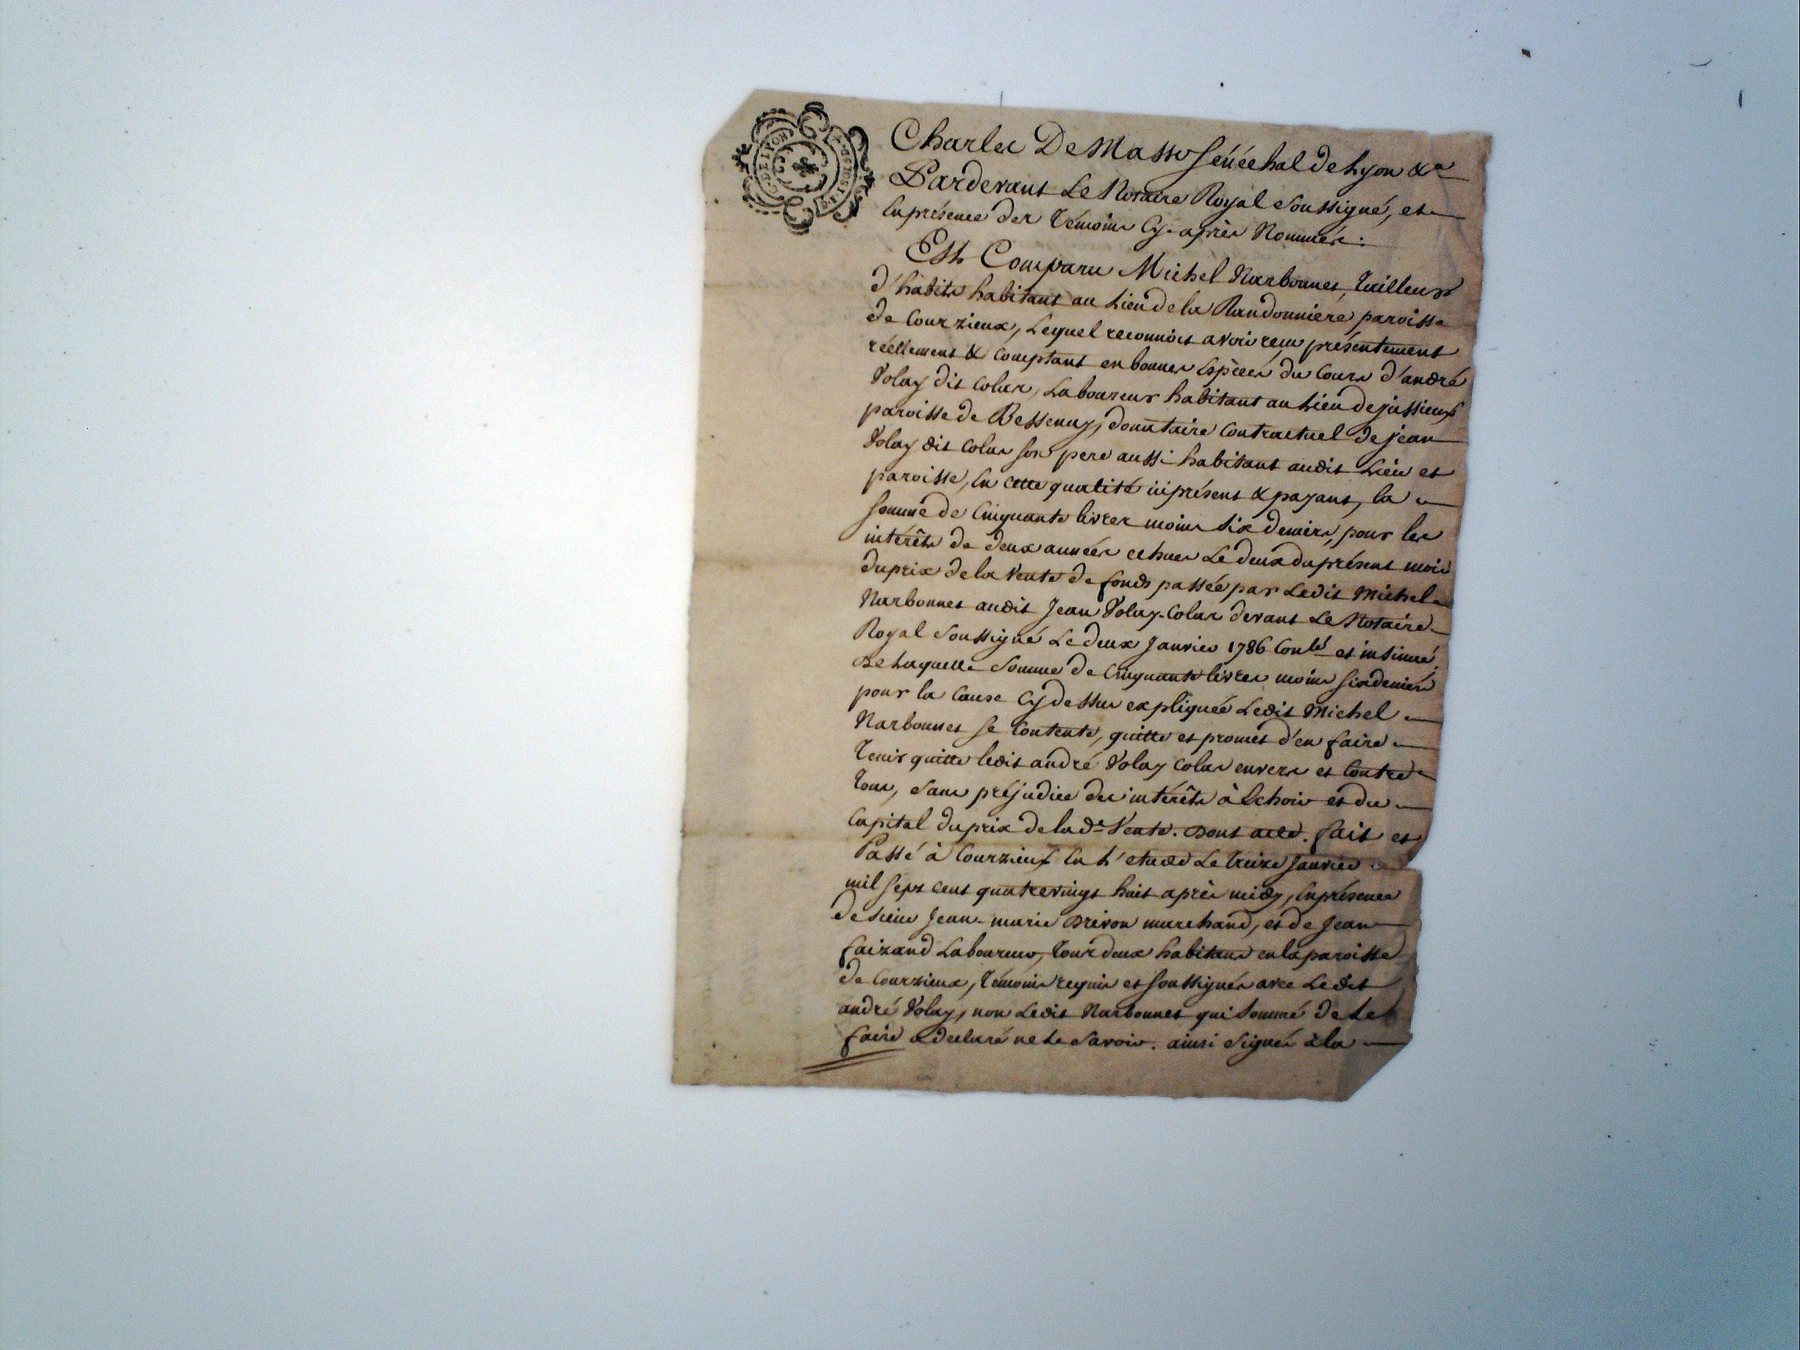 G. DE LYON
Charles De Masso sénéchal de Lyon &a
Pardevant Le Notaire Royal soussigné, et
En présence des témoins Cy-après Nommés :
Est Comparu Michel Narbonnet, tailleur
d'habits habitant au Lieu de la Randonnière paroisse
de Courzieux, Lequel reconnoit avoir reçu présentement
réellement & comptant en bonnes Espèces du Cours d'andré
Volay dit Colas, Laboureur habitant au Lieu de jussieux
paroisse de Bessenay, donataire Contractuel de jean
Volay dit Colas son pere aussi habitant audit Lieu et
paroisse, En cette qualité icy présent & payant, la
somme de Cinquante livres moins six deniers, pour les
intérêts de deux années echues Le deux du présent mois
du prix de la Vente de fonds passée par Ledit Michel
Narbonnet audit Jean Volay-Colas devant Le Notaire
Royal soussigné Le deux Janvier 1786 Conlé et insinué,
De Laquelle somme de Cinquante livres moins six deniers
pour la Cause Cy dessus expliquée Ledit Michel
Narbonnet se Contente, quitte et promet d'en faire
tenir quitte ledit andré Volay Colas envers et Contre
tous, sans préjudice des intérêts à Echoir et du
Capital du prix de lade Vente. Dont acte. fait et
Passé à Courzieux En L'etude Le treize Janvier
mil sept cent quatrevingt huit après midy, En présence
de sieur Jean-marie Drivon marchand, et de Jean
faizand Laboureur, tous deux habitans en la paroisse
de Courzieux, témoins requis et soussignés avec Ledit
andré Volay, non Ledit Narbonnet qui sommé de Le
faire a declaré ne Le savoir. ainsi signés à la